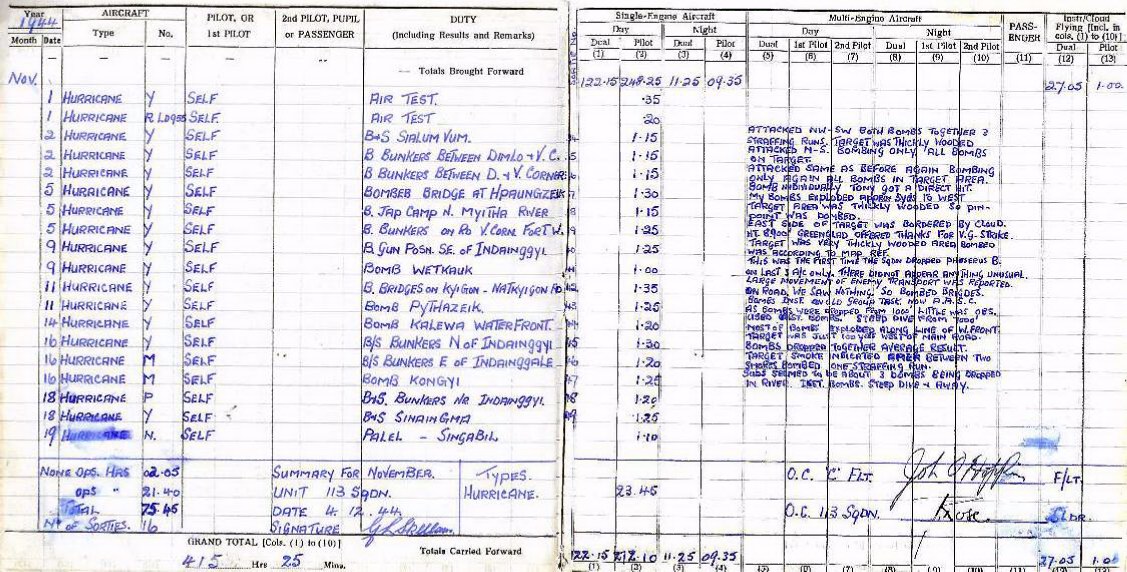 Year AIRCRAFT PILOT, OR 2ND PILOT, PUPIL DUTY
1944 Type No. 1ST PILOT OR PASSENGER (INCLUDING RESULTS AND REMARKS)
Month Date
— — — — — — Totals Brought Forward
NOV.
1 HURRICANE Y SELF AIR TEST.
1 HURRICANE R SELF AIR TEST
2 HURRICANE Y SELF B+S SIALUM VUM.
2 HURRICANE Y SELF B BUNKERS BETWEEN DIMLO + V.C.
2 HURRICANE Y SELF B BUNKERS BETWEEN D. + V. CORNER
5 HURRICANE Y SELF BOMBED BRIDGE AT HPAUNGZEIK
5 HURRICANE Y SELF B. JAP CAMP N. MYITHA RIVER
5 HURRICANE Y SELF B. BUNKERS ON RD V. CORN. FORT W.
9 HURRICANE Y SELF B. GUN POSN. SE. OF INDAINGGYI
9 HURRICANE Y SELF BOMB WETKAUK
11 HURRICANE Y SELF B. BRIDGES ON KYIGON - NATKYIGON RD.
11 HURRICANE Y SELF BOMB PYTHAZEIK.
14 HURRICANE Y SELF BOMB KALEWA WATERFRONT.
16 HURRICANE Y SELF B/S BUNKERS N OF INDAINGGYI
16 HURRICANE M SELF B/S BUNKERS E OF INDAINGGALE
16 HURRICANE M SELF BOMB KONGYI
18 HURRICANE P SELF B+S. BUNKERS NR INDAINGGYI.
18 HURRICANE Y SELF B+S SINAINGMA
19 HURRICANE N. SELF PALEL - SINGABIL
NONE OPS. HRS 02.05 SUMMARY FOR NOVEMBER. TYPES.
OPS " 21.40 UNIT 113 SQDN. HURRICANE.
TOTAL 75.45 DATE 4.12.44.
NO OF SORTIES. 16 SIGNATURE
GRAND TOTAL [Cols. (1) to (10)] Totals Carried Forward
415 Hrs 25 Mins.
SINGLE-ENGINE AIRCRAFT MULTI-ENGINE AIRCRAFT PASS-ENGER INSTR/CLOUD FLYING [Incl. in cols. (1) to (10)]
DAY NIGHT DAY NIGHT
DUAL PILOT DUAL PILOT DUAL 1ST PILOT 2ND PILOT DUAL 1ST PILOT 2ND PILOT DUAL PILOT
(1) (2) (3) (4) (5) (6) (7) (8) (9) (10) (11) (12) (13)
122.15 248.25 11.25 09.35 27.05 1.00
.35
.20
1.15
1.15
1.15
1.30
1.15
1.25
1.25
1.00
1.35
1.25
1.20
1.30
1.20
1.25
1.20
1.25
1.10
ATTACKED NW-SW BOTH BOMBS TOGETHER 2
STRAFFING RUNS. TARGET WAS THICKLY WOODED
ATTACKED N-S. BOMBING ONLY. ALL BOMBS
ON TARGET.
ATTACKED SAME AS BEFORE AGAIN BOMBING
ONLY AGAIN ALL BOMBS IN TARGET AREA.
BOMB INDIVIDUALLY TONY GOT A DIRECT HIT.
MY BOMBS EXPLODED APPROX 5YDS TO WEST
TARGET AREA WAS THICKLY WOODED SO PIN-
POINT WAS BOMBED.
EAST SIDE OF TARGET WAS BORDERED BY CLOUD.
OFFERED THANKS FOR V.G. STRIKE.
TARGET WAS VERY THICKLY WOODED AREA BOMBED
WAS ACCORDING TO MAP REF.
THIS WAS THE FIRST TIME THE SQDN DROPPED
ON LAST 3 A/C ONLY. THERE DID NOT APPEAR ANYTHING UNUSUAL.
LARGE MOVEMENT OF ENEMY TRANSPORT WAS REPORTED.
ON ROAD. WE SAW NOTHING, SO BOMBED BRIDGES.
BOMBS INST.
AS BOMBS WERE DROPPED FROM 1000' LITTLE WAS OBS.
STEEP DIVE FROM 7000'
MOST OF BOMBS EXPLODED ALONG LINE OF W. FRONT.
TARGET WAS JUST 100 YDS WEST OF MAIN ROAD.
BOMBS DROPPED TOGETHER AVERAGE RESULT.
TARGET SMOKE INDICATED AREA BETWEEN TWO
SMOKES BOMBED ONE STRAFFING RUN.
SEEMED TO BE ABOUT 3 BOMBS BEING DROPPED
IN RIVER. INST. BOMBS. STEEP DIVE + AWAY.
23.45
O.C. "C" FLT. F/LT.
O.C. 113 SQDN. S/LDR.
122.15 272.10 11.25 09.35 27.05 1.00
(1) (2) (3) (4) (5) (6) (7) (8) (9) (10) (11) (12) (13)